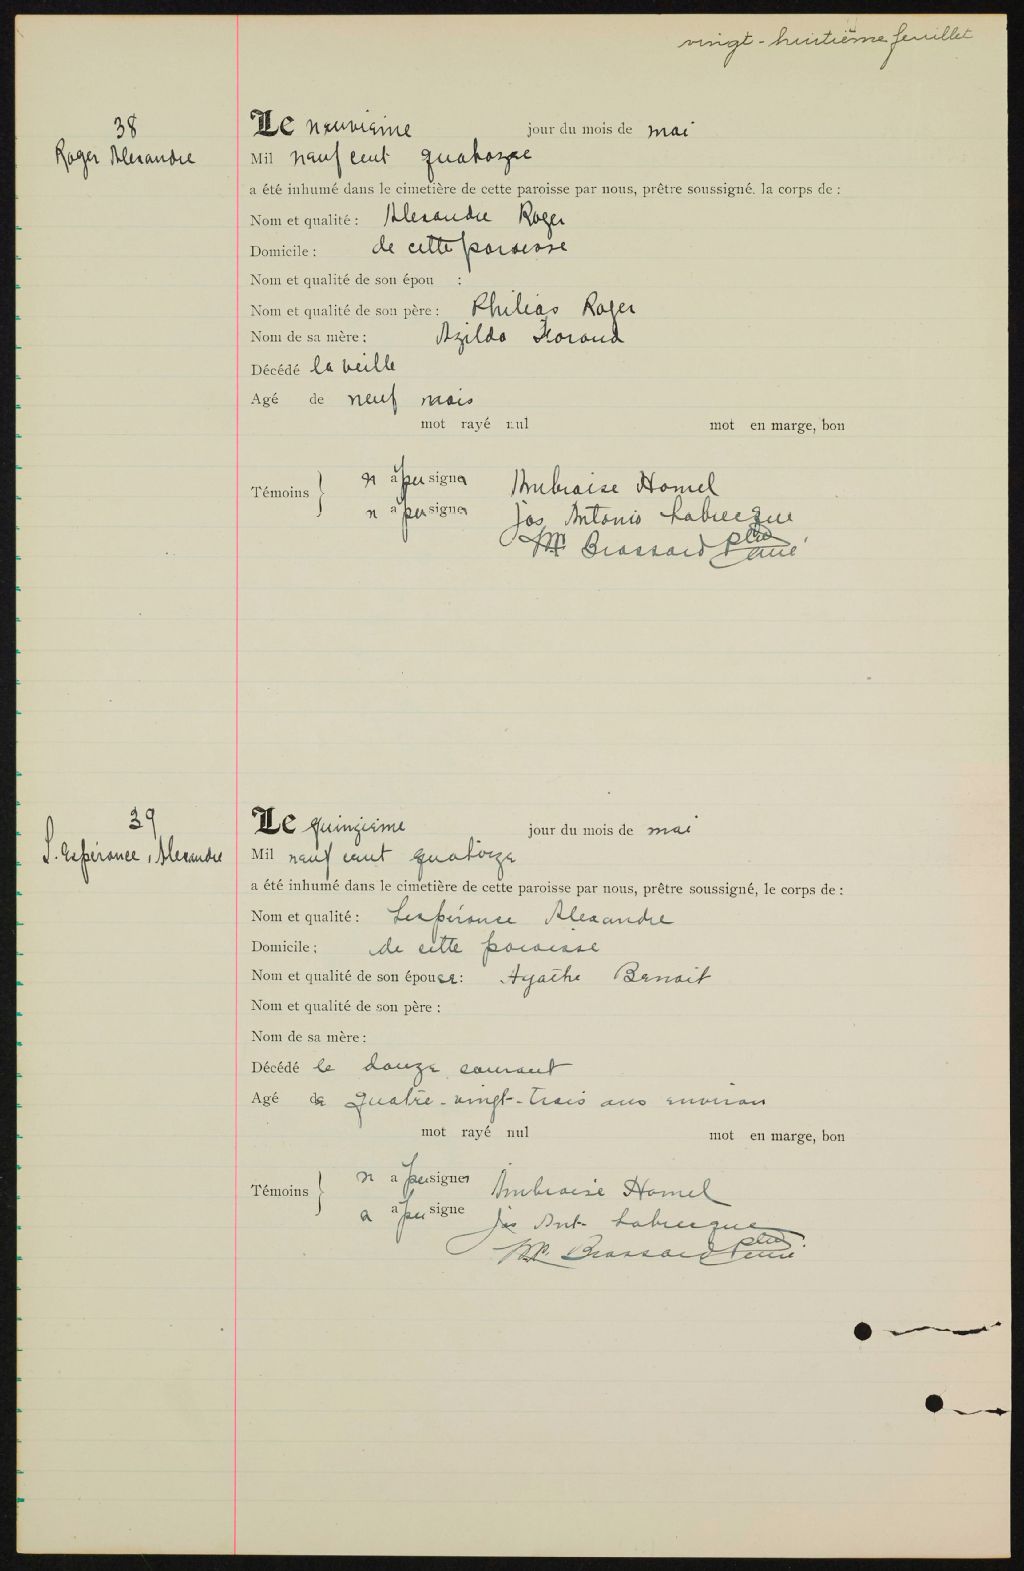 vingt-huitième feuillet
38
Roger Alexandre
Le neuvième jour du mois de mai
Mil neuf cent quatorze
a été inhumé dans le cimetière de cette paroisse par nous, prêtre soussigné. la corps de :
Nom et qualité : Alexandre Roger
Domicile : de cette paroisse
Nom et qualité de son épou :
Nom et qualité de son père : Philias Roger
Nom de sa mère : Azilda
Décédé la veille
Agé de neuf mois
mot rayé nul mot en marge, bon
Témoins } n a pu signer Ambroise Hamel
n a pu signer Jos Antonio Labrecque
Brassard ptre curé
39
L'Espérance, Alexandre
Le quinzième jour du mois de mai
Mil neuf cent quatorze
a été inhumé dans le cimetière de cette paroisse par nous, prêtre soussigné, le corps de :
Nom et qualité : Lespérance Alexandre
Domicile : de cette paroisse
Nom et qualité de son épouse : Agathe Benoit
Nom et qualité de son père :
Nom de sa mère :
Décédé le douze courant
Agé de quatre-vingt-trois ans environ
mot rayé nul mot en marge, bon
Témoins } n a pu signer Ambroise Hamel
a a pu signe Jos Ant- Labrecque
Brassard ptre curé